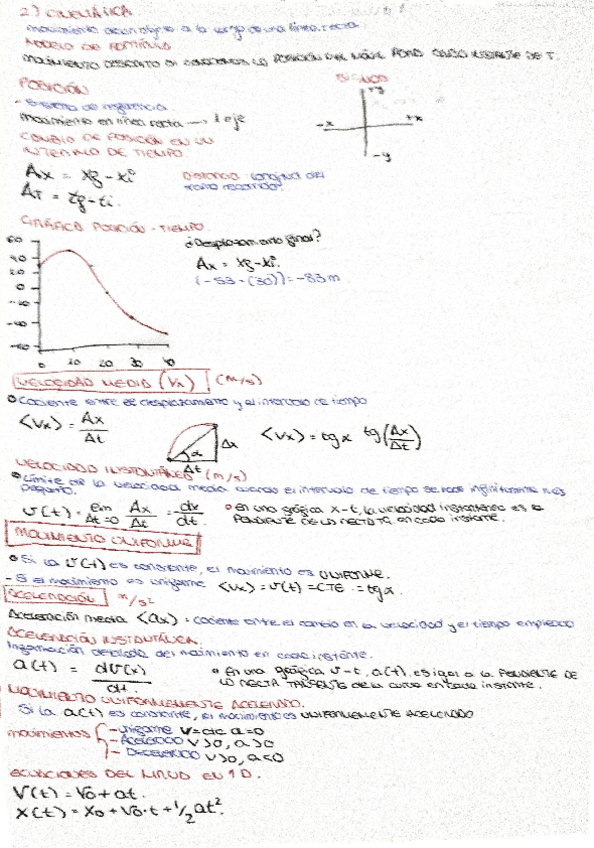 2) CINEMÁTICA
movimiento de un objeto a lo largo de una línea recta
MODELO DE PARTÍCULA
MOVIMIENTO DESCRITO SI CONOCEMOS LA POSICIÓN DEL MÓVIL PARA CADA INSTANTE DE T.
POSICIÓN
SIGNOS
- Sistema de referencia
+y
movimiento en línea recta → 1 eje
-x +x
-y
CAMBIO DE POSICIÓN EN UN
INTERVALO DE TIEMPO
Δx = xf - xi
Δt = tf - ti.
Distancia: longitud del
tramo recorrido.
GRÁFICA POSICIÓN - TIEMPO
60
40
20
0
0 10 20 30 40
¿Desplazamiento final?
Δx = xf - xi.
(-53 - (30)) = -83 m
VELOCIDAD MEDIA (Vx) (m/s)
Cociente entre el desplazamiento y el intervalo de tiempo
<Vx> = Δx/Δt
α Δx
Δt
<Vx> = tg α tg(Δx/Δt)
VELOCIDAD INSTANTÁNEA (m/s)
Límite de la velocidad media cuando el intervalo de tiempo se hace infinitamente más
pequeño.
v(t) = lim Δt=0 Δx/Δt = dx/dt.
En una gráfica x-t, la velocidad instantánea es la
PENDIENTE DE LA RECTA TG, en cada instante.
MOVIMIENTO UNIFORME
Si la v(t) es constante, el movimiento es UNIFORME.
- Si el movimiento es uniforme <Vx> = v(t) = CTE = tg α.
ACELERACIÓN m/s²
Aceleración media <ax> = cociente entre el cambio en la velocidad y el tiempo empleado
ACELERACIÓN INSTANTÁNEA.
Información detallada del movimiento en cada instante.
a(t) = dv(x)/dt.
En una gráfica v-t, a(t), es igual a la PENDIENTE DE
LA RECTA TANGENTE de la curva en cada instante.
MOVIMIENTO UNIFORMEMENTE ACELERADO.
Si la a(t) es constante, el movimiento es UNIFORMEMENTE ACELERADO
movimientos
- uniforme v=cte a=0
- ACELERADO v>0, a>0
- DECELERADO v>0, a<0
ECUACIONES DEL MRUA EN 1D.
V(t) = V0 + at.
X(t) = X0 + V0·t + 1/2 at².